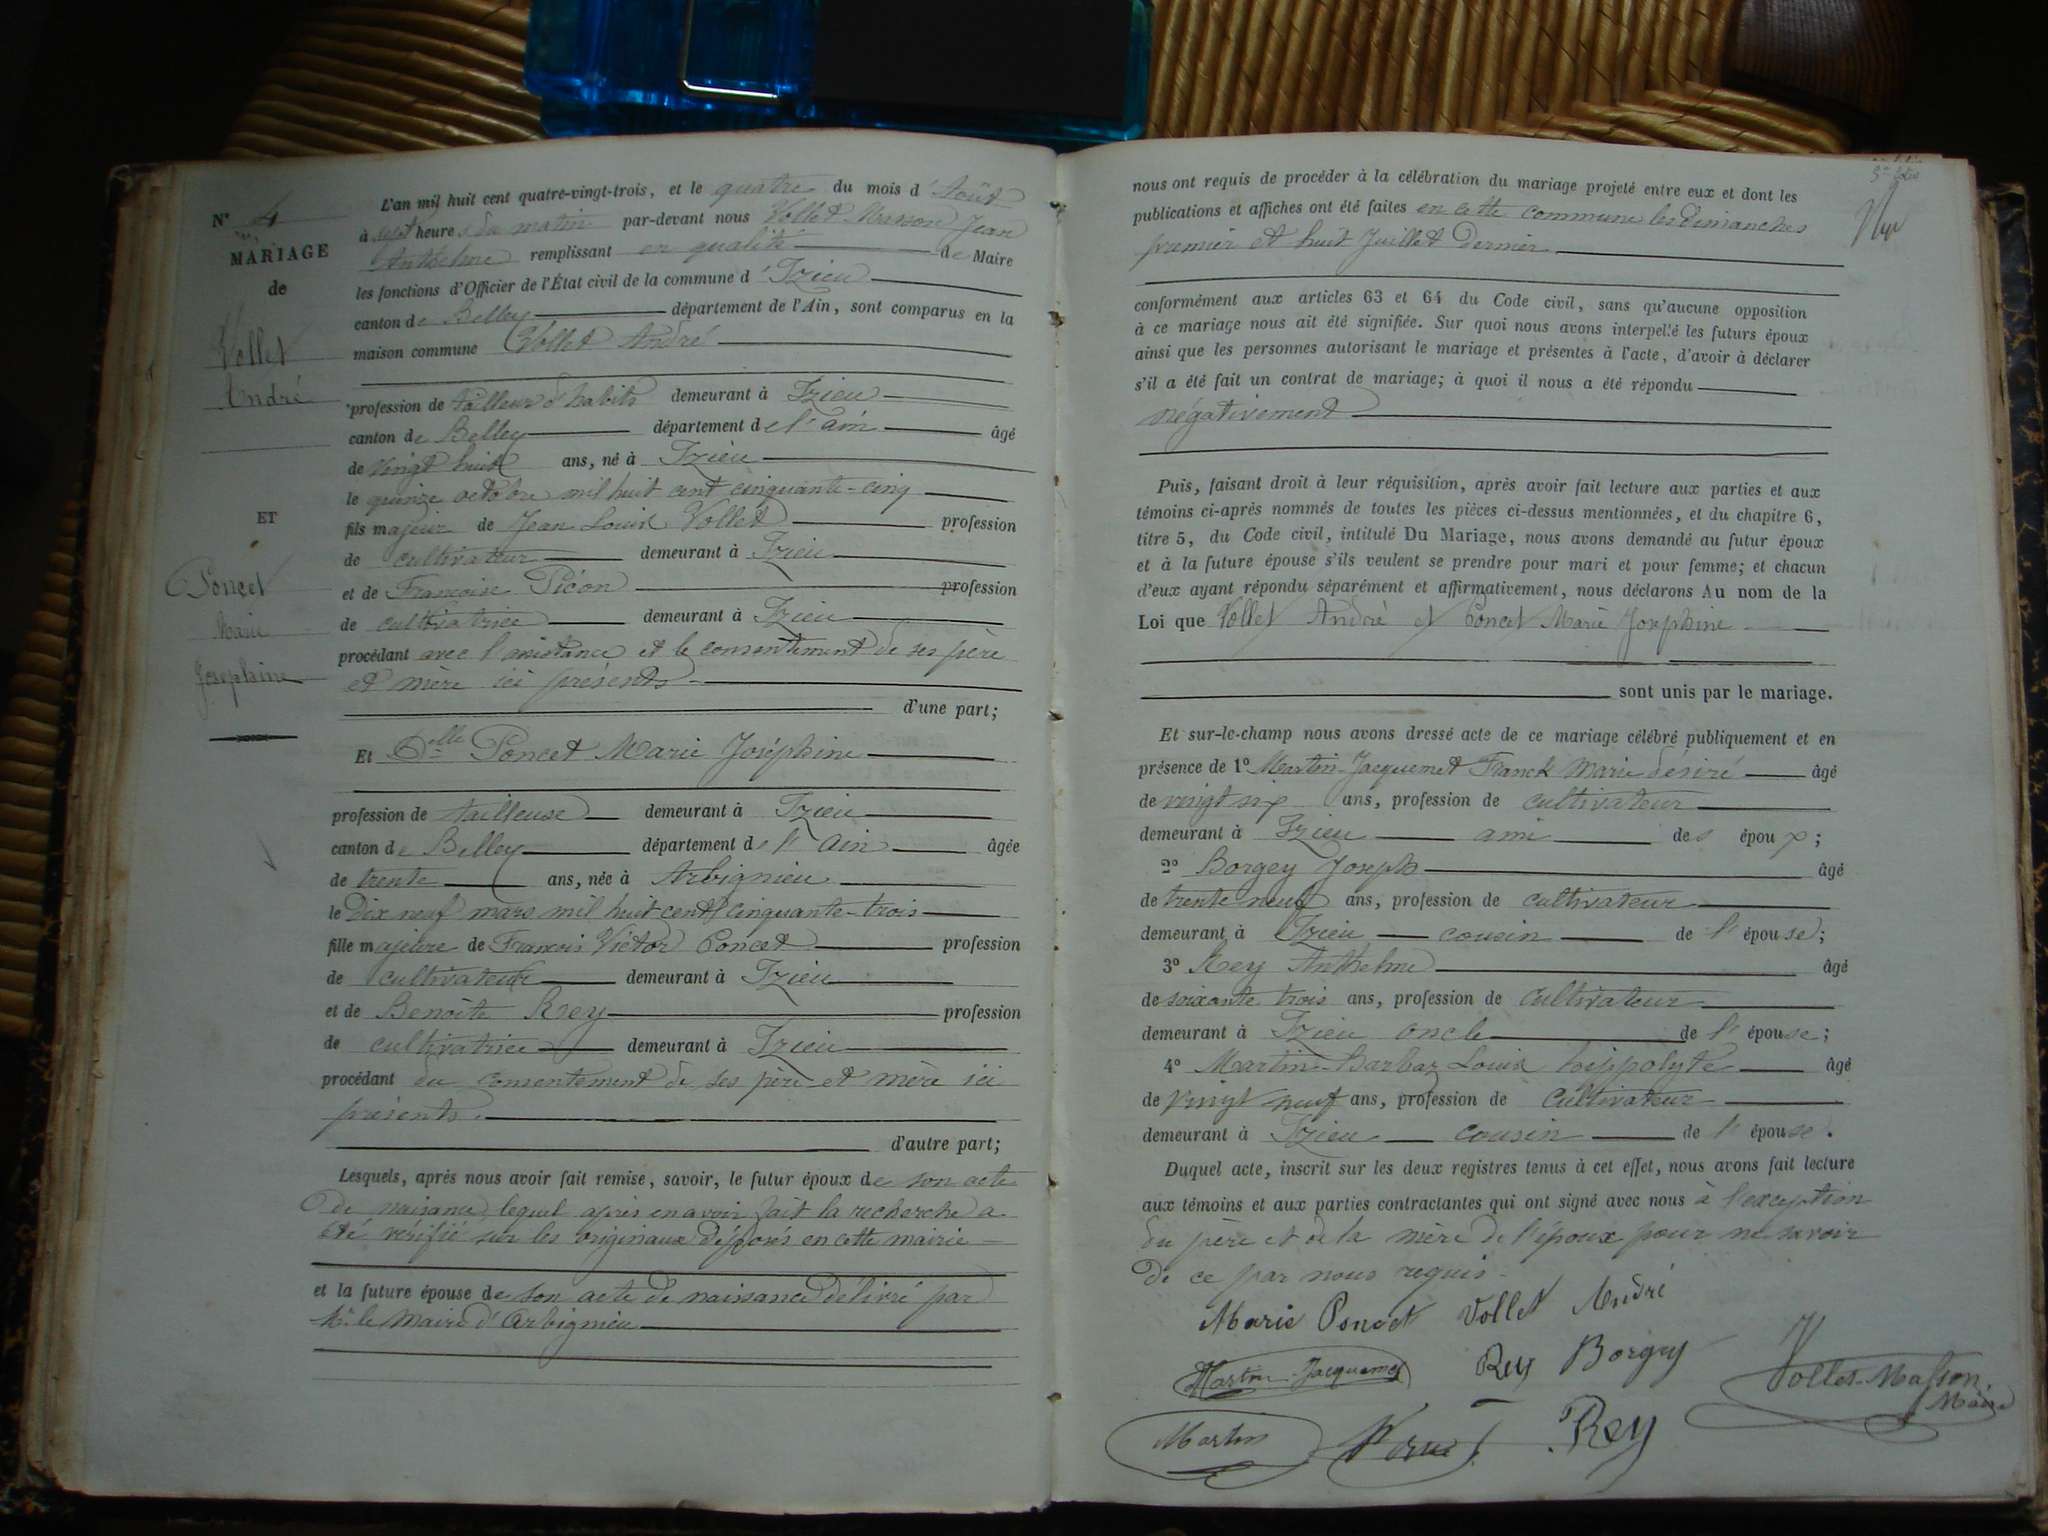 N° 4
MARIAGE
de
Vollet
André
ET
Poncet
Marie
Joséphine
L'an mil huit cent quatre-vingt-trois, et le quatre du mois d'Août
à sept heures du matin par-devant nous Vollet-Masson Jean
Anthelme remplissant en qualité de Maire
les fonctions d'Officier de l'État civil de la commune d'Izieu
canton de Belley département de l'Ain, sont comparus en la
maison commune Vollet André
profession de tailleur d'habits demeurant à Izieu
canton de Belley département de l'ain âgé
de vingt huit ans, né à Izieu
le quinze octobre mil huit cent cinquante-cinq
fils majeur de Jean Louis Vollet profession
de cultivateur demeurant à Izieu
et de Françoise Picon profession
de cultivatrice demeurant à Izieu
procédant avec l'assistance et le consentement de ses père
et mère ici présents
d'une part;
Et Delle Poncet Marie Joséphine
profession de tailleuse demeurant à Izieu
canton de Belley département de l'Ain âgée
de trente ans, née à Arbignieu
le Dix neuf mars mil huit cent cinquante-trois
fille majeure de François Victor Poncet profession
de cultivateur demeurant à Izieu
et de Benoîte Rey profession
de cultivatrice demeurant à Izieu
procédant du consentement de ses père et mère ici
présents.
d'autre part;
Lesquels, après nous avoir fait remise, savoir, le futur époux de son acte
de naissance, lequel après en avoir fait la recherche a
été vérifié sur les originaux déposés en cette mairie
et la future épouse de son acte de naissance délivré par
Mr le Maire d'Arbignieu
nous ont requis de procéder à la célébration du mariage projeté entre eux et dont les
publications et affiches ont été faites en cette commune les Dimanches
premier et huit Juillet Dernier
conformément aux articles 63 et 64 du Code civil, sans qu'aucune opposition
à ce mariage nous ait été signifiée. Sur quoi nous avons interpellé les futurs époux
ainsi que les personnes autorisant le mariage et présentes à l'acte, d'avoir à déclarer
s'il a été fait un contrat de mariage; à quoi il nous a été répondu
négativement
Puis, faisant droit à leur réquisition, après avoir fait lecture aux parties et aux
témoins ci-après nommés de toutes les pièces ci-dessus mentionnées, et du chapitre 6,
titre 5, du Code civil, intitulé Du Mariage, nous avons demandé au futur époux
et à la future épouse s'ils veulent se prendre pour mari et pour femme; et chacun
d'eux ayant répondu séparément et affirmativement, nous déclarons Au nom de la
Loi que Vollet André et Poncet Marie Joséphine
sont unis par le mariage.
Et sur-le-champ nous avons dressé acte de ce mariage célébré publiquement et en
présence de 1° Martin-Jacquemet Franck Marie désiré âgé
de vingt six ans, profession de cultivateur
demeurant à Izieu ami des époux;
2° Borgey Joseph âgé
de trente neuf ans, profession de cultivateur
demeurant à Izieu cousin de l'épouse;
3° Rey Anthelme âgé
de soixante trois ans, profession de cultivateur
demeurant à Izieu oncle de l'épouse;
4° Martin-Barbaz Louis hippolyte âgé
de vingt neuf ans, profession de cultivateur
demeurant à Izieu cousin de l'épouse.
Duquel acte, inscrit sur les deux registres tenus à cet effet, nous avons fait lecture
aux témoins et aux parties contractantes qui ont signé avec nous à l'exception
du père et de la mère de l'époux pour ne savoir
de ce par nous requis.
Marie Poncet Vollet André
Martin-Jacquemet Rey Borgey
Vollet-Masson, Maire
Martin Poncet Rey